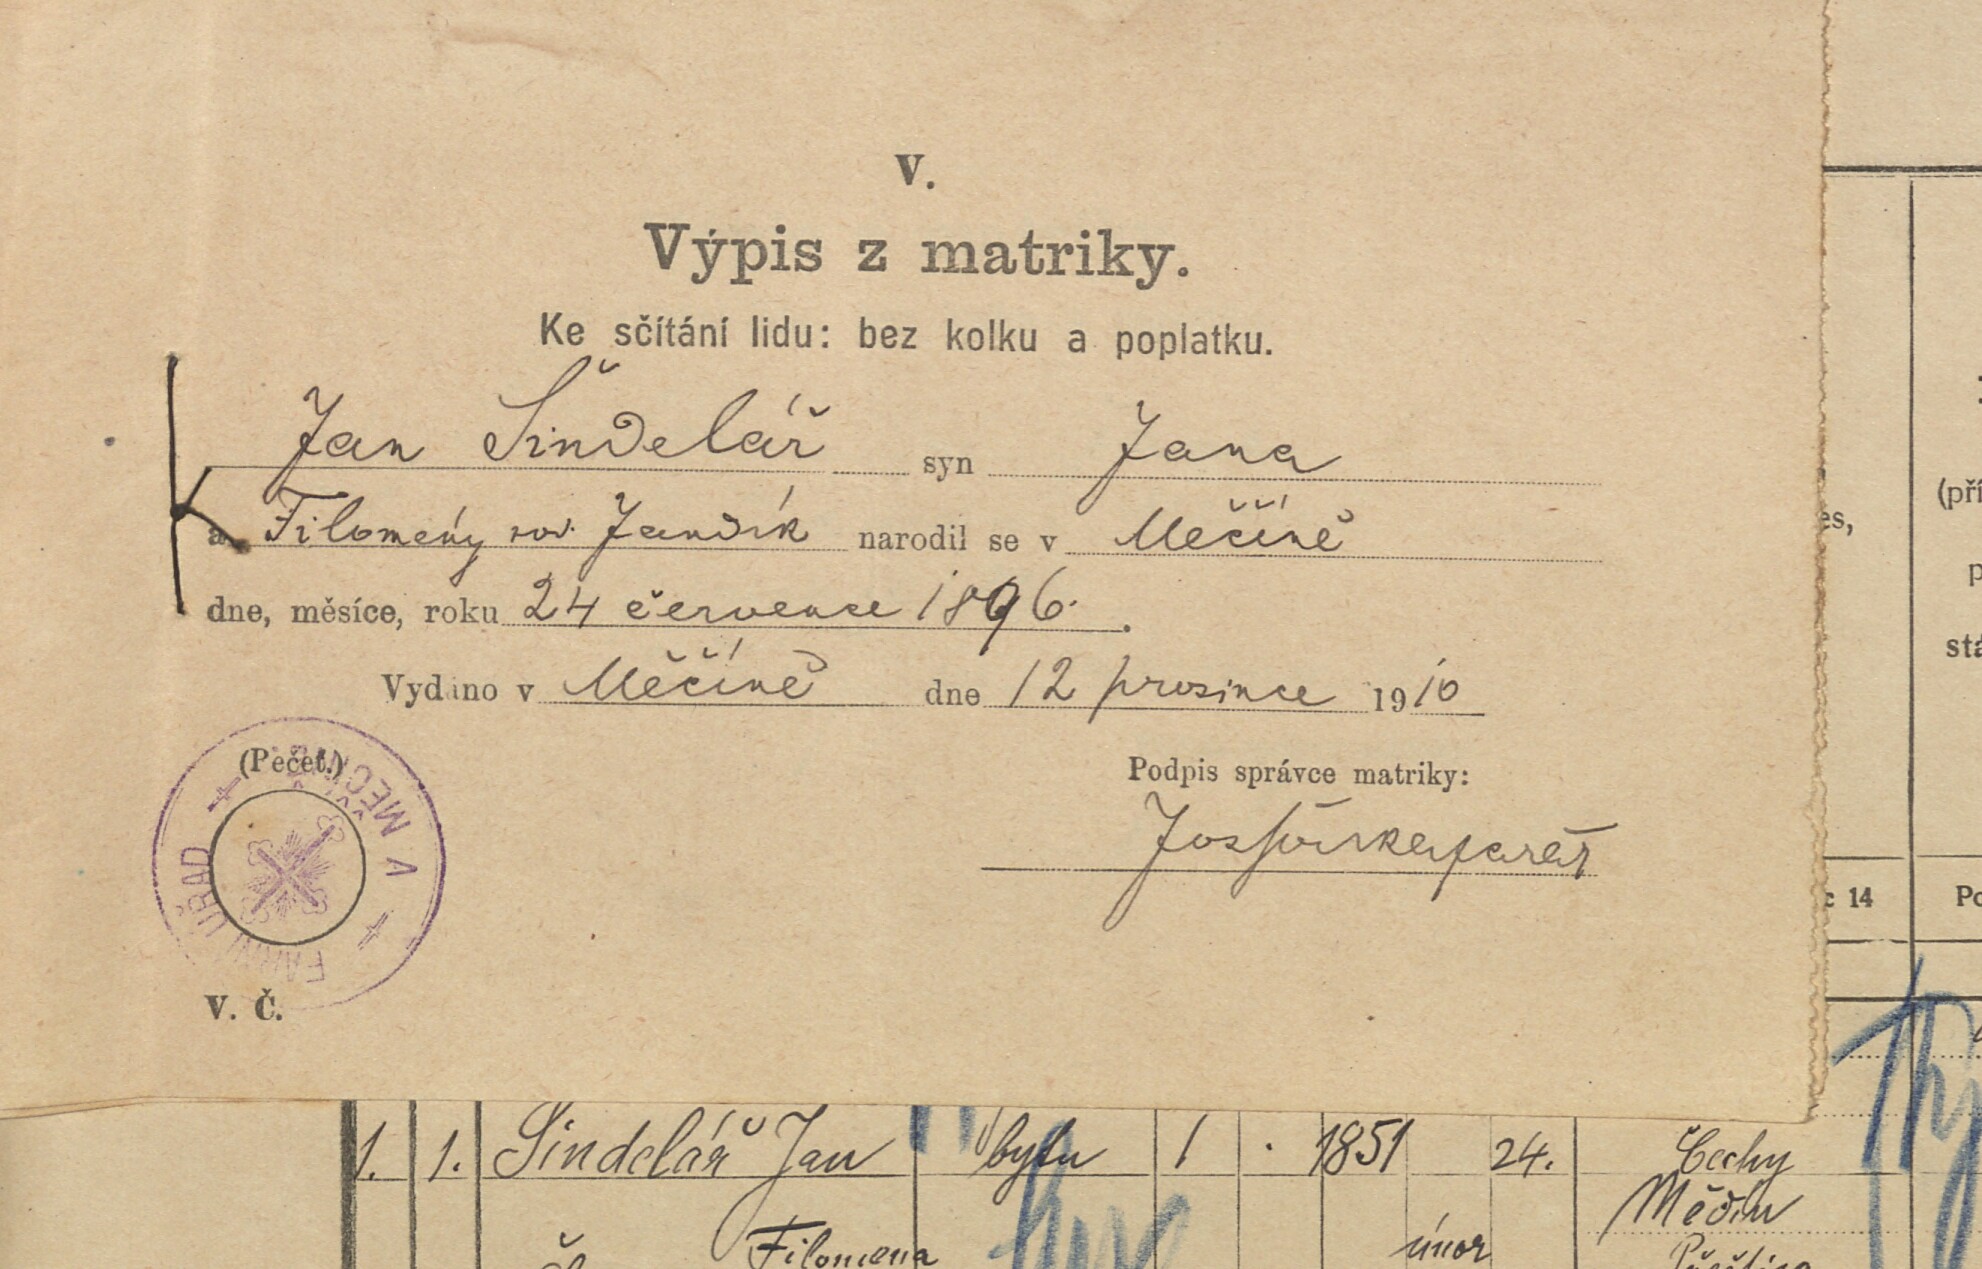 V.
Výpis z matriky.
Ke sčítání lidu: bez kolku a poplatku.
Jan Šindelář syn Jana
a Filomény roz. Jandík narodil se v Měčíně
dne, měsíce, roku 24 července 1896.
Vydáno v Měčíně dne 12 prosince 1910
(Pečeť.)
FARNÍ ÚŘAD V MĚČÍNĚ
Podpis správce matriky:
Jos farář
V. Č.
es,
(pří
p
stá
14
Po
1. 1. Šindelář Jan bytu 1 . 1851 24. Čechy
Filomena únor